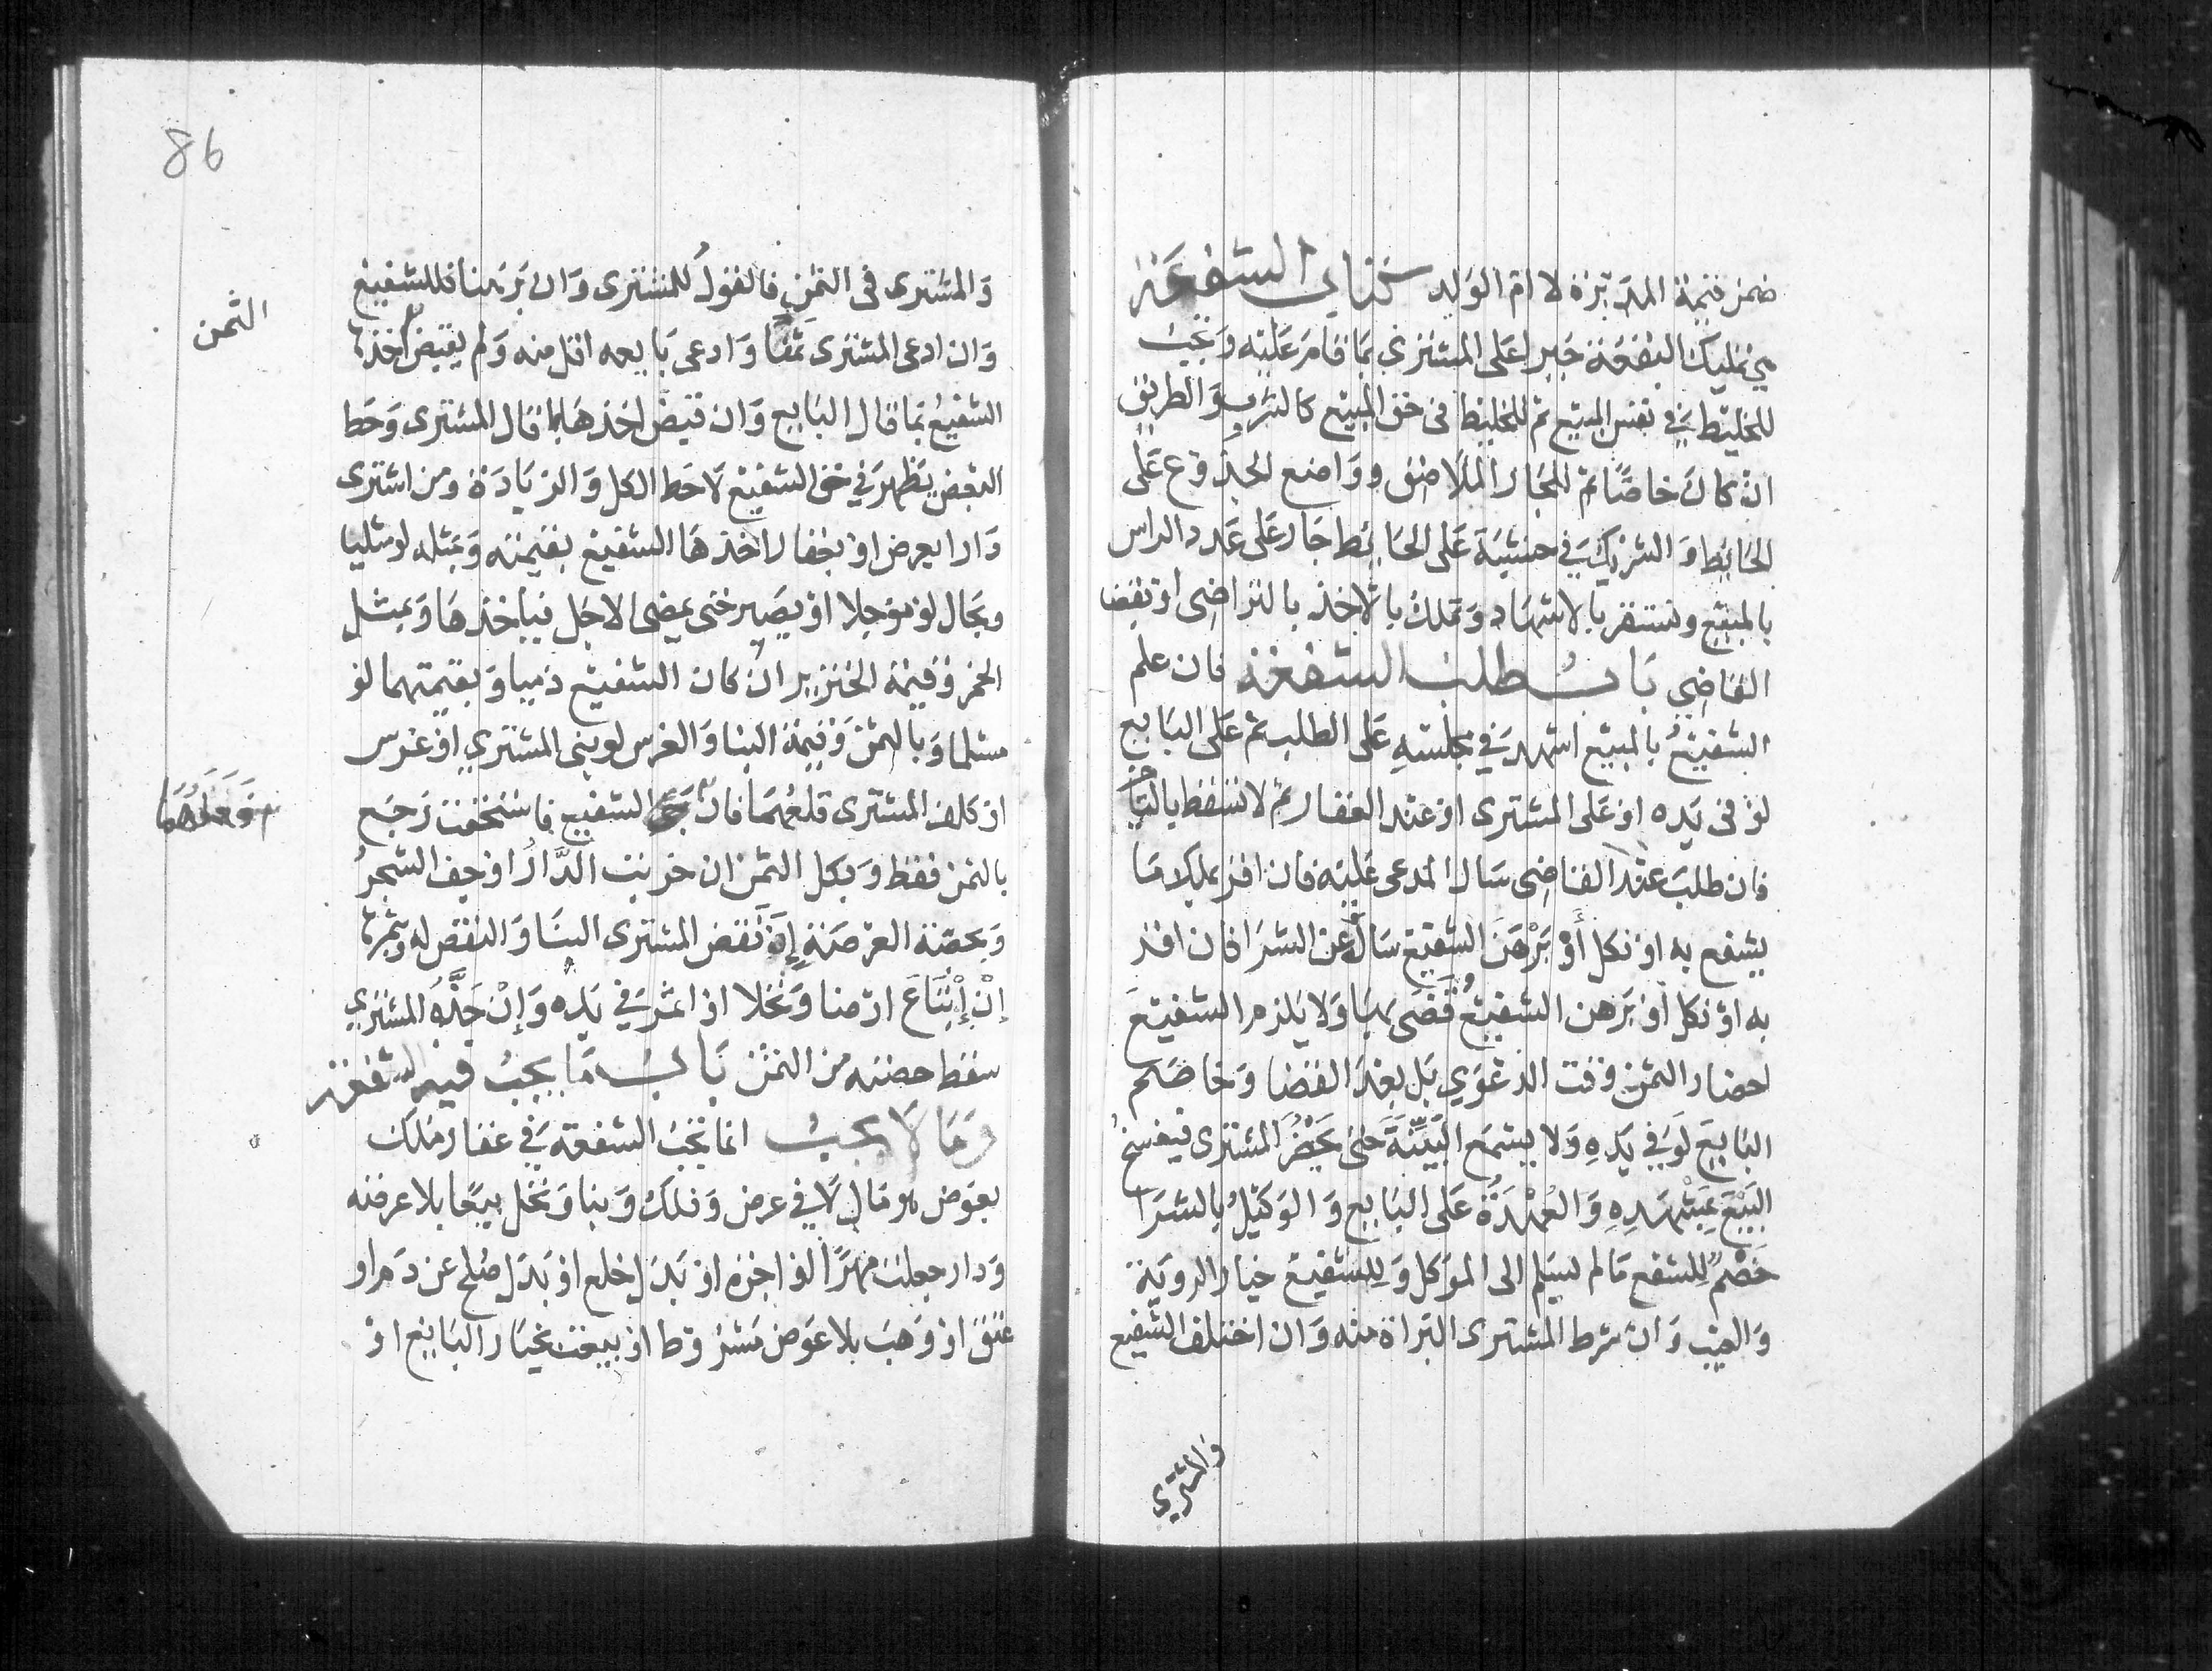 ضمن قيمة المدبرة لا ام الولد كتاب الشفعة
هي تمليك البقعة جبرا على المشتري بما قام عليه وتجب
للخليط في نفس المبيع ثم للخليط في حق المبيع كالشرب والطريق
ان كان خاصا ثم للجار الملاصق وواضع الجذوع على
الحائط والشريك في خشبة على الحائط جار على عدد الراس
بالمبيع وتستقر بالاشهاد وتملك بالاخذ بالتراضي او بقضا
القاضي باب طلب الشفعة فان علم
الشفيع بالمبيع اشهد في مجلسه على الطلب ثم على البايع
لو في يده او على المشترى او عند العقار ثم لا تسقط بالتا
فان طلب عند القاضى سال المدعى عليه فان اقر بملك ما
يشفع به او نكل أو برهن الشفيع سال عن الشرا فان اقر
به او نكل او برهن الشفيع قضى بها ولا يلزم الشفيع
احضار الثمن وقت الدعوي بل بعد القضا وخاصم
البايع لو في يده ولا يسمع البينة حتى يحضر المشترى فيفسخ
البيع بمشهده والعهدة على البايع والوكيل بالشرا
خصم للشفع ما لم يسلم الى الموكل وللشفيع خيار الروية
والعيب وان شرط المشترى البراة منه وان اختلف الشفيع
والمشتري
86
والمشترى فى الثمن فالقول للمشترى وان برهنا فللشفيع
وان ادعى المشترى ثمنا وادعى بايعه اقل منه ولم يقبض اخذها
الثمن
الشفيع بما قال البايع وان قبض اخذها بما قال المشترى وحط
البعض يظهر في حق الشفيع لا حط الكل والزيادة ومن اشترى
دارا بعرض او بعقار اخذها الشفيع بقيمته وبمثله لو مثليا
وبحال لو موجلا او يصبر حتى يمضى الاجل فياخذها وبمثل
الخمر وقيمة الخنزير ان كان الشفيع ذميا وبقيمتهما لو
مسلما وبالثمن وقيمة البنا والغرس لو بنى المشتري او غرس
او كلف المشترى قلعهما فان الشفيع فاستحقت رجع
بالثمن فقط وبكل الثمن ان خربت الدار او جف الشجر
وبحصة العرصة إن نقض المشترى البنا والنقض له وثمرها
إن إبتاع ارضا ونخلا او اثمر في يده وإن جذه المشتري
سقط حصته من الثمن باب ما يجب فيه الشفعة
وما لا يجب انما تجب الشفعة في عقار ملك
بعوض هو مال لا في عرض وفلك وبنا ونخل بيعا بلا عرصة
ودار جعلت مهرا او اجرة او بدل خلع او بدل صلح عن دم او
عتق او وهب بلا عوض مشروط او بيعت بخيار البايع او